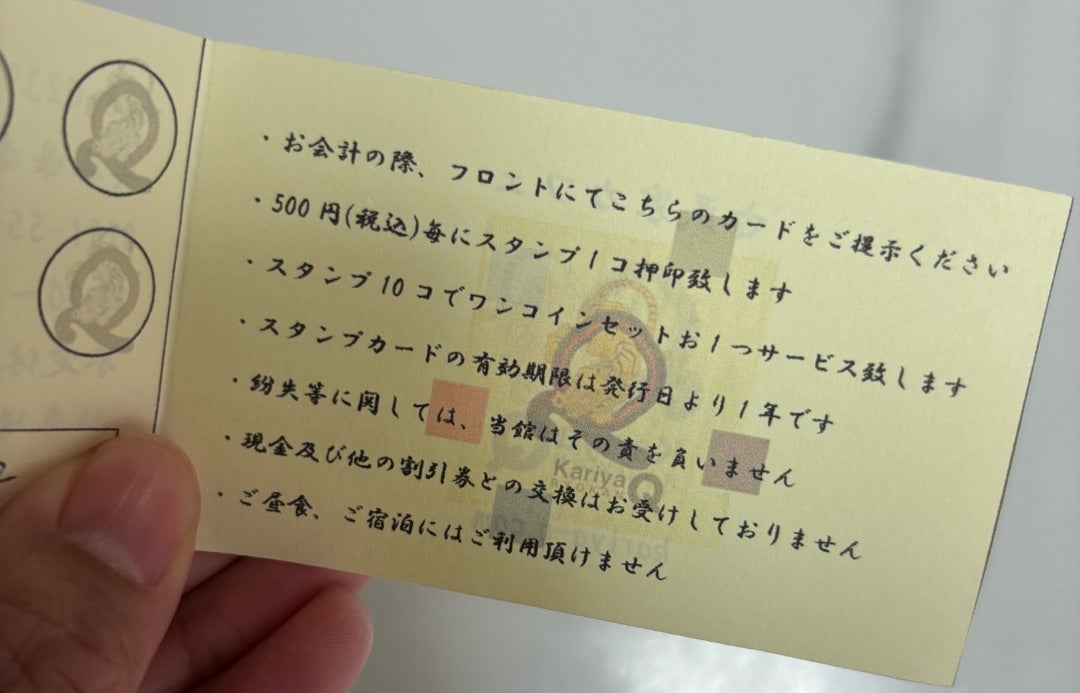 ・お会計の際、フロントにてこちらのカードをご提示ください
・500円(税込)毎にスタンプ1コ押印致します
・スタンプ10コでワンコインセットお1つサービス致します
・スタンプカードの有効期限は発行日より1年です
・紛失等に関しては、当館はその責を負いません
・現金及び他の割引券との交換はお受けしておりません
・ご昼食、ご宿泊にはご利用頂けません
Kariya
Q